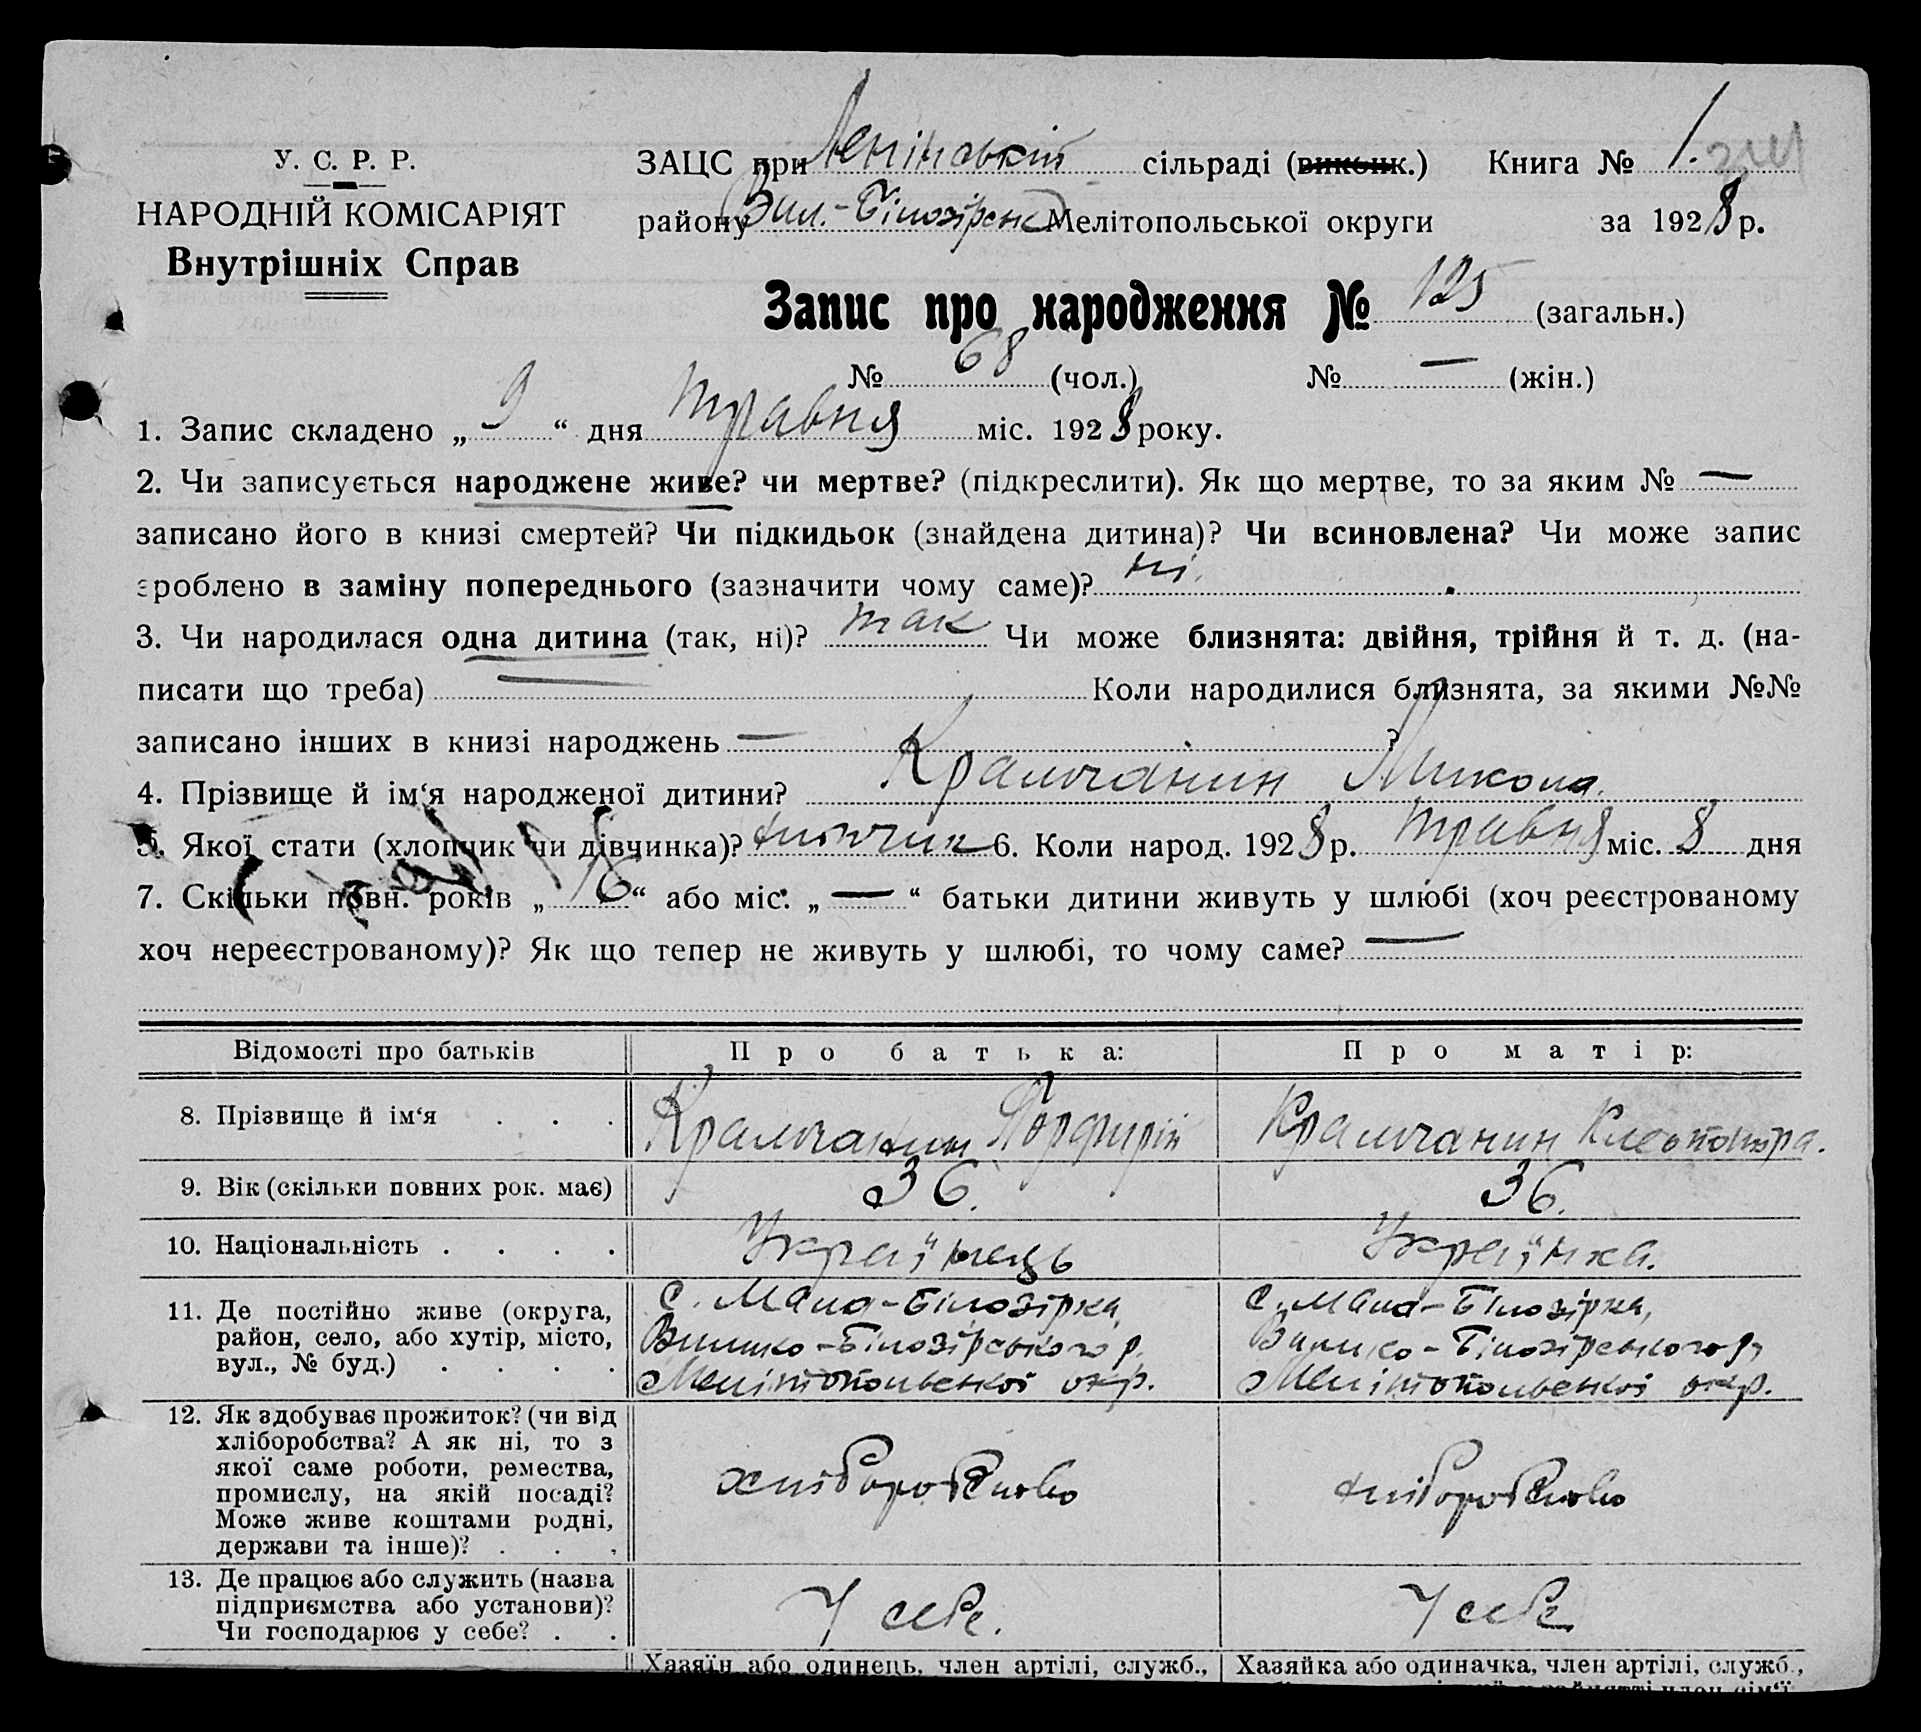 У. С. Р. Р.
НАРОДНІЙ КОМІСАРІЯТ
Внутрішніх Справ
ЗАЦС при Ленінській сільраді (виконк.) Книга № 1.
району (Вил.-Білозірськ) Мелітопольської округи за 1928 р.
Запис про народження № 125 (загальн.)
№ 68 (чол.) № — (жін.)
1. Запис складено „ 9 “ дня травня міс. 1928 року.
2. Чи записується народжене живе? чи мертве? (підкреслити). Як що мертве, то за яким № —
записано його в книзі смертей? Чи підкидьок (знайдена дитина)? Чи всиновлена? Чи може запис
зроблено в заміну попереднього (зазначити чому саме)? ні.
3. Чи народилася одна дитина (так, ні)? так Чи може близнята: двійня, трійня й т. д. (на-
писати що треба) — Коли народилися близнята, за якими №№
записано інших в книзі народжень — ?
4. Прізвище й ім‘я народженої дитини? Крамчанин Микола.
5. Якої стати (хлопчик чи дівчинка)? хлопчик 6. Коли народ. 1928 р. травня міс. 8 дня
7. Скільки повн. років „ 16 “ або міс. „ — “ батьки дитини живуть у шлюбі (хоч реєстрованому
хоч нереєстрованому)? Як що тепер не живуть у шлюбі, то чому саме? —
Відомості про батьків Про батька: Про матір:
8. Прізвище й ім‘я . . . Крамчанин Порфирій Крамчанин Клеопатра.
9. Вік (скільки повних рок. має) 36. 36.
10. Національність . . . . Українець Українка.
11. Де постійно живе (округа,
район, село, або хутір, місто,
вул., № буд.) . . . .
с. Мала-Білозірка,
Вилико-Білозірського р.
Мелітопольської окр.
с. Мала-Білозірка,
Вилико-Білозірського р,
Мелітопольської окр.
12. Як здобуває прожиток? (чи від
хліборобства? А як ні, то з
якої саме роботи, ремества,
промислу, на якій посаді?
Може живе коштами родні,
держави та інше)? . . .
хліборобство
хліборобство
13. Де працює або служить (назва
підприємства або установи)?
Чи господарює у себе? . .
У себе.
У себе
Хазяїн або одинець, член артілі, служб., Хазяйка або одиначка, член артілі, служб.,